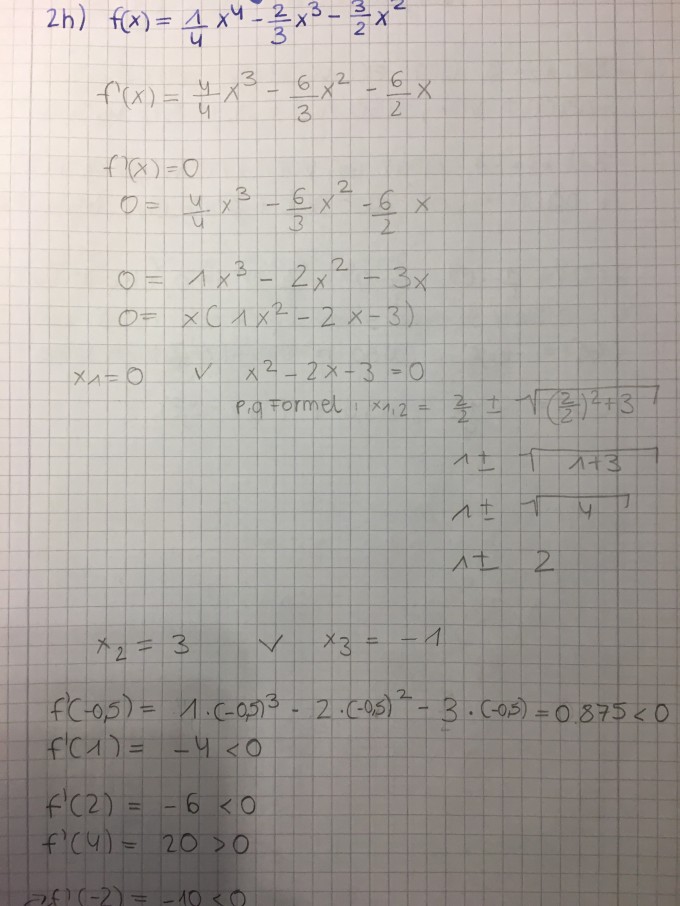 2h) f(x) = 1/4 x⁴ - 2/3 x³ - 3/2 x²
f'(x) = 4/4 x³ - 6/3 x² - 6/2 x
f'(x) = 0
0 = 4/4 x³ - 6/3 x² - 6/2 x
0 = 1x³ - 2x² - 3x
0 = x(1x² - 2x - 3)
x1 = 0 ∨ x² - 2x - 3 = 0
p,q Formel: x1,2 = 2/2 ± √((2/2)² + 3)
1 ± √(1+3)
1 ± √4
1 ± 2
x₂ = 3 ∨ x₃ = -1
f'(-0,5) = 1·(-0,5)³ - 2·(-0,5)² - 3·(-0,5) = 0.875 < 0
f'(1) = -4 < 0
f'(2) = -6 < 0
f'(4) = 20 > 0
⇒ f'(-2) = -10 < 0